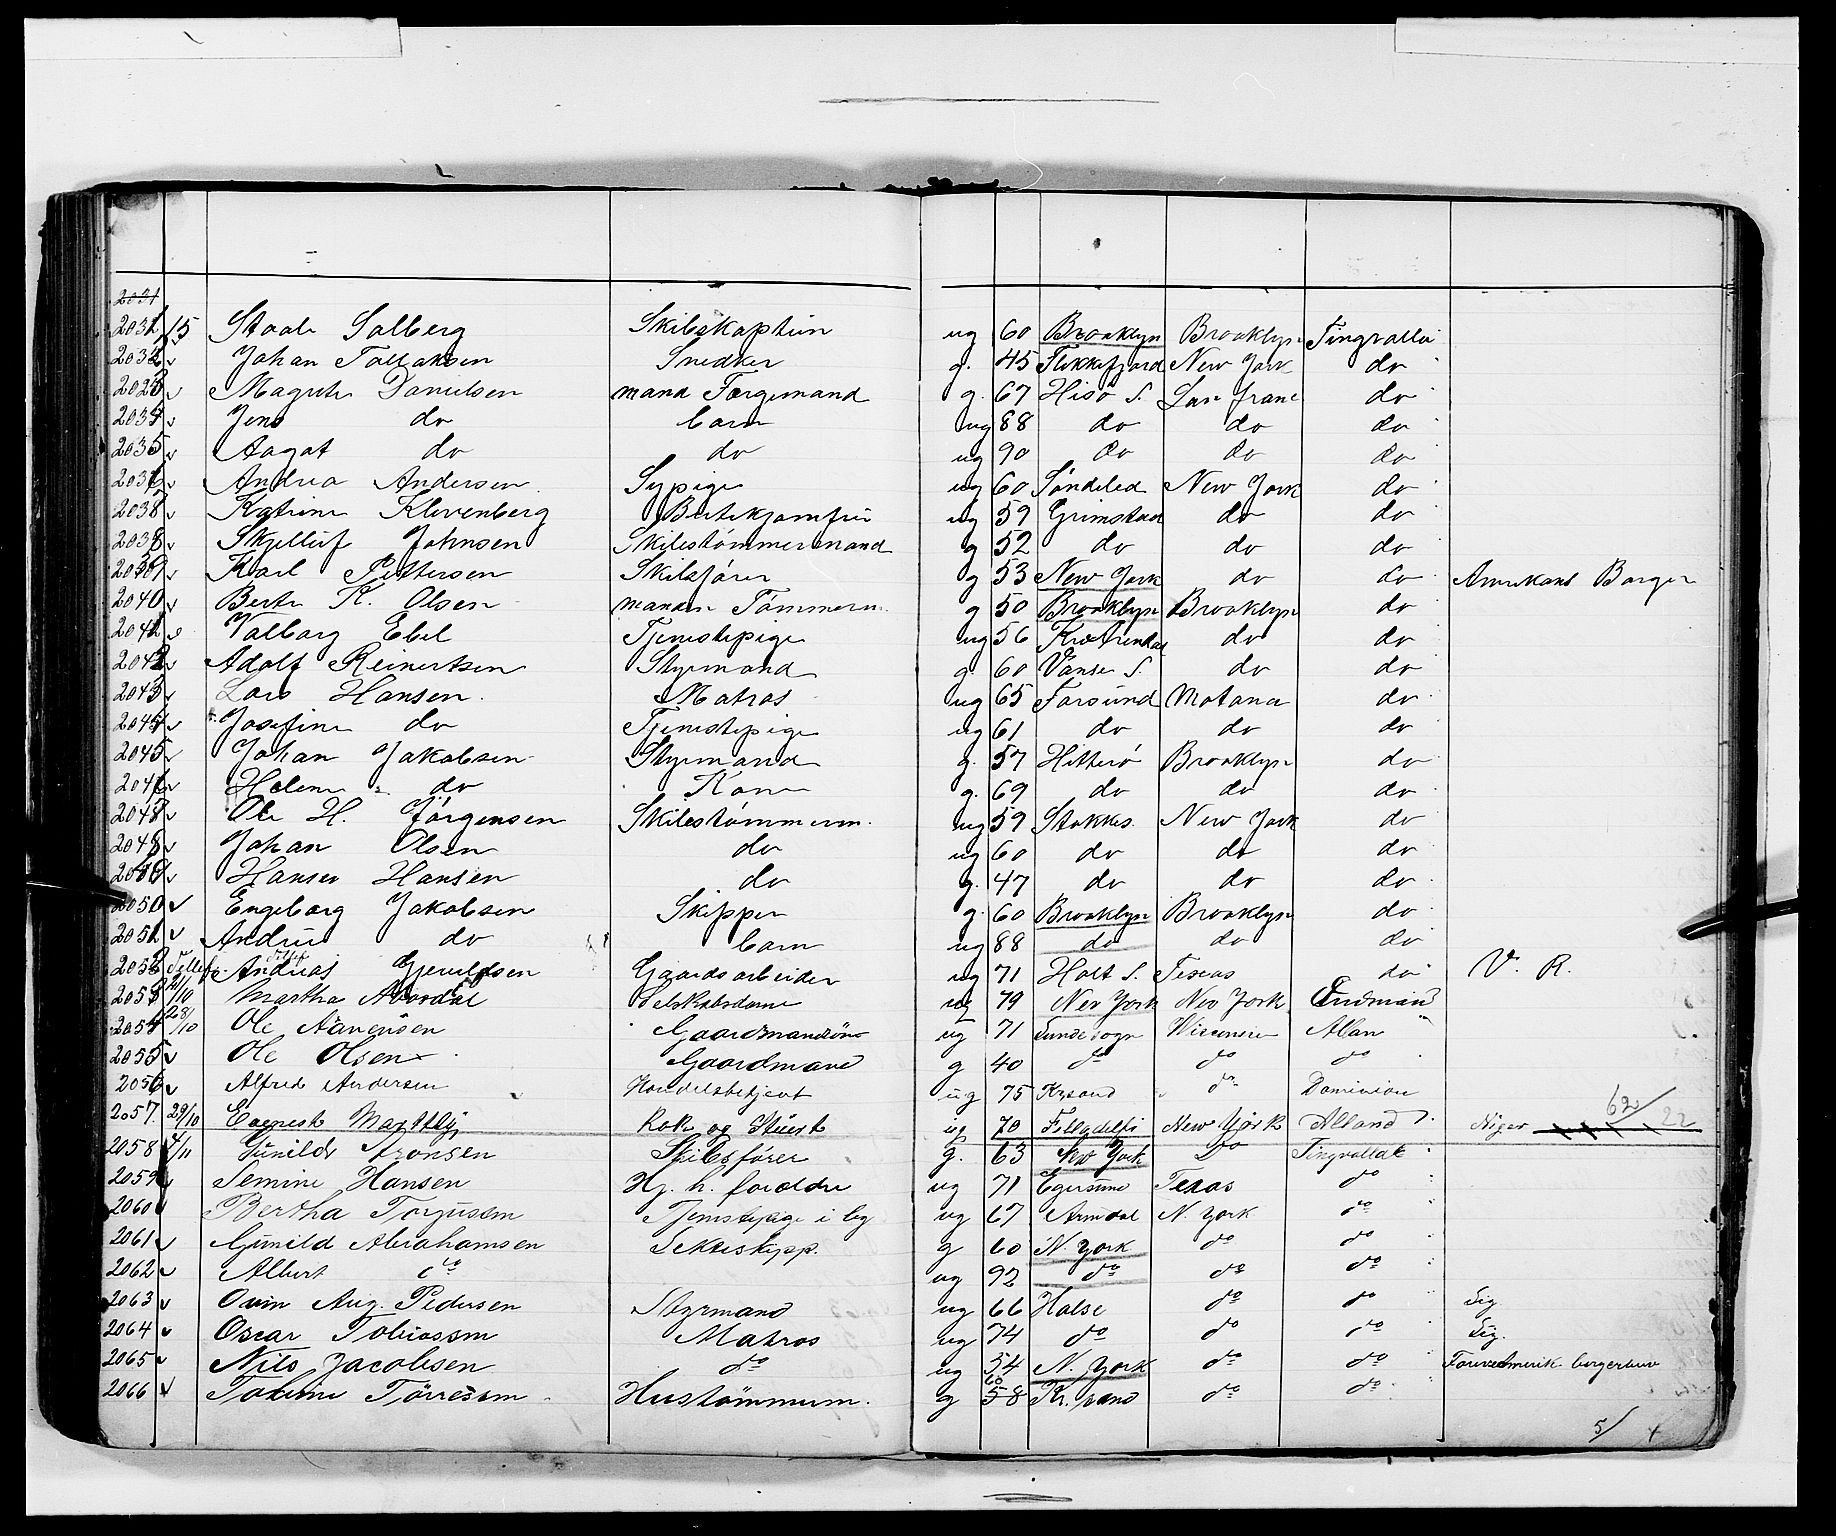 2031
2031 15 Staale Solberg Skibskaptein ug 60 Brooklyn Brooklyn Tingvalla
2032 v Johan Tallaksen Snedker g. 45 Flekkefjord New York do
2033 v Danielsen mand Færgemand g. 67 Hisø S. San franc do
2034 v Jens do barn ug 88 do do do
2035 v Aagot do do ug 90 do do do
2036 v Andrea Andersen Sypige ug 60 Søndeled New York do
2037 v Katrine Klevenberg ug 59 Grimstad do do
2038 v Johnsen Skibstømmermand g 52 do do do
2039 v Karl Pettersen Skibsfører g 53 New York do do Amrikans Borger
2040 v Berte K. Olsen manden Tømmerm. g 50 Brooklyn Brooklyn do
2041 v Valborg Ebel Tjenestepige ug 56 do do
2042 v Adolf Reinertsen Styrmand g. 60 Vanse S. do do
2043 v Lars Hansen. Matros ug 65 Farsund Motana do
2044 v Josefine do Tjenestepige ug 61 do do do
2045 v Johan Jakobsen Styrmand g. 57 Hitterø Brooklyn do
2046 v Helene do Kone g. 69 do do do
2047 v Ole H. Jørgensen Skibstømmerm. ug 59 Stokkes. New York do
2048 v Johan Olsen do ug 60 do do do
2049 v Hansen do g. 47 do do do
2050 v Engeborg Jakobsen Skipper g. 60 Brooklyn Brooklyn do
2051 v do barn ug 88 do do do
2052 Andreas Gjeruldsen Gaardsarbeider ug 71 Holt S. Texas do V. R.
2053 21/10 Martha Selskabsdame ug 79 New York New York
2054 28/10 Ole Aanensen Gaardmandsøn ug 71 Wisconsin Allan
2055 v Ole Olsen Gaardmand g 40 do do do
2056 v Alfred Andersen Handelsbetjent ug 75 Krsand do Dominion
2057. 29/10 Kok og Stuert ug 70 New York Alland Niger 62/22
2058 4/11 Gunilde Aronsen Skibsfører g. 63 New York Do Tingvalla
2059 v Semine Hansen Hj. h. foreldre ug 71 Egersund Texas do
2060 v Bertha Torgussen Tjenstepige i ug 67 Arendal N. York do
2061 v Gunild Abrahamsen g 60 N. York do do
2062 v Albert do ug 92 do do do
2063 v Aug. Pedersen Styrmand ug 66 Halse do do Sig.
2064 v Oscar Tobiassen Matros ug 74 do do do Sig.
2065 v Nils Jacobsen do ug 54 N. York do do Amerik. borgerbrev
2066 v Tørressen Hustømmerm. g 60 58 Kr. sand do do
5/ +